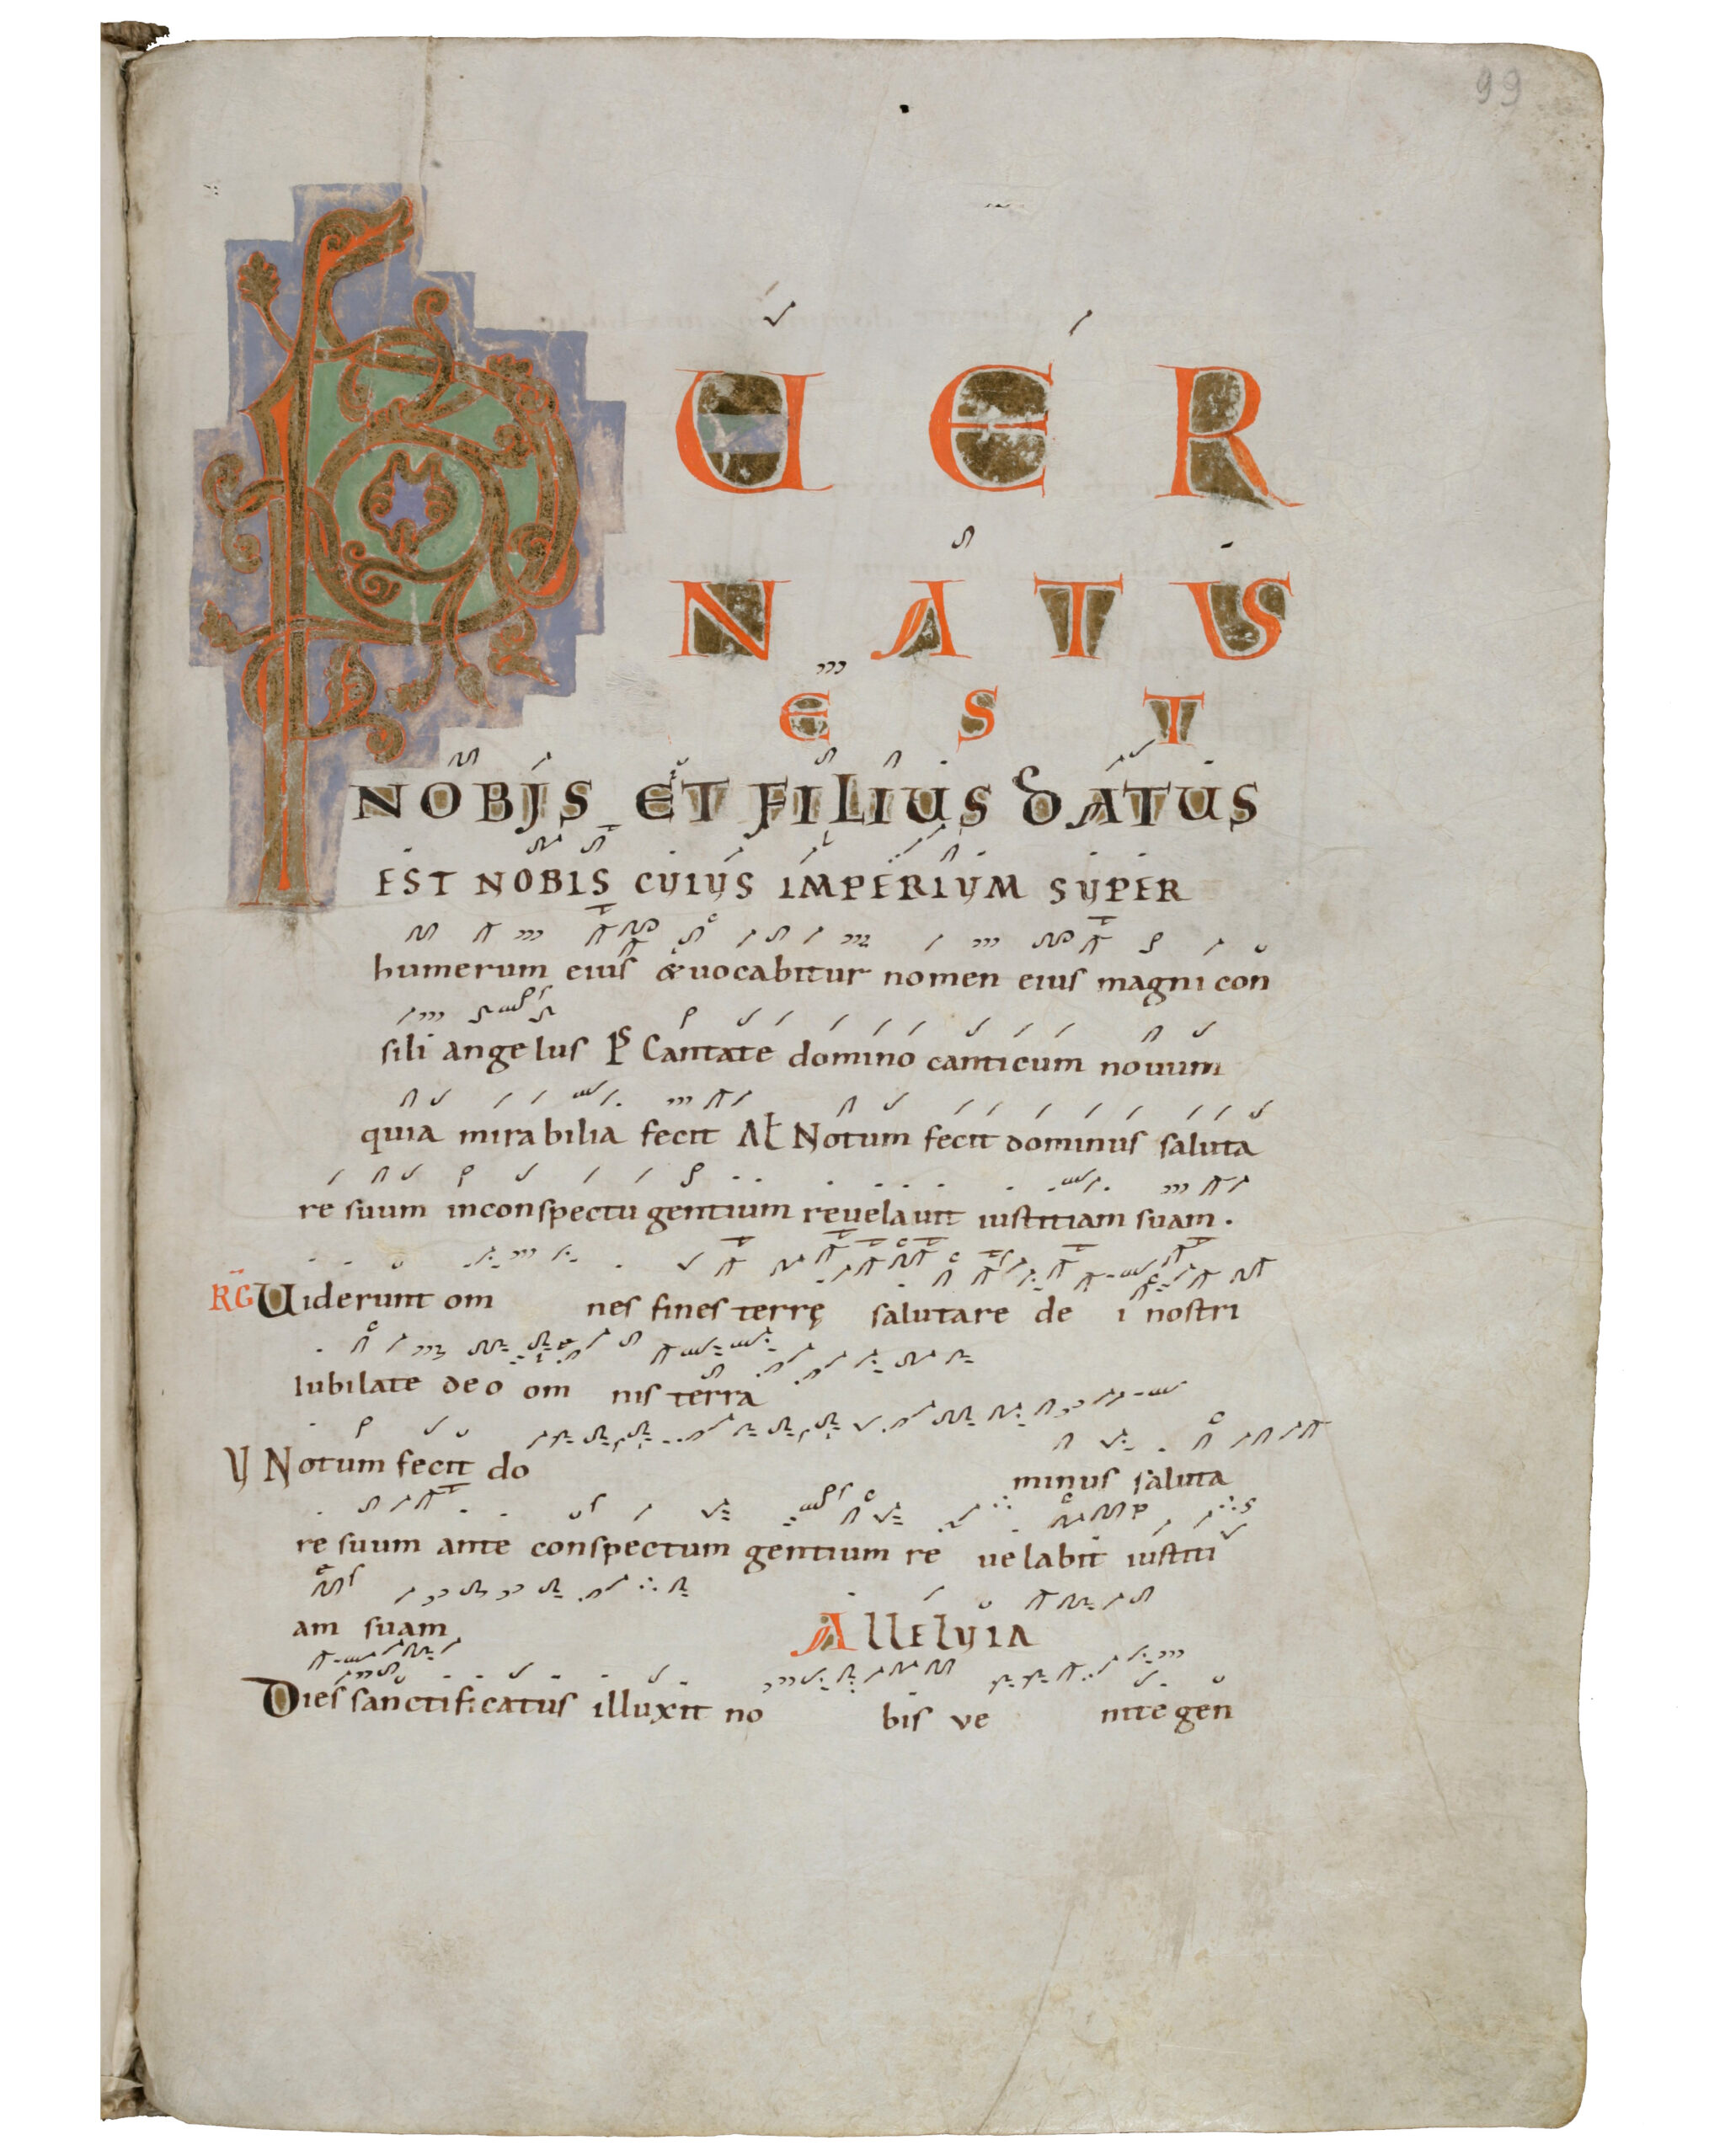 99
PUER
NATUS
EST
NOBIS ET FILIUS DATUS
EST NOBIS CUIUS IMPERIUM SUPER
humerum eius & uocabitur nomen eius magni con
sili angelus PS Cantate domino canticum nouum
quia mirabilia fecit AL Notum fecit dominus saluta
re suum inconspectu gentium reuelauit iustitiam suam.
RG Uiderunt om nes fines terrę salutare de i nostri
Iubilate deo om nis terra
V Notum fecit do minus saluta
re suum ante conspectum gentium re uelabit iustiti
am suam ALLELUIA
Dies sanctificatus illuxit no bis ve nite gen